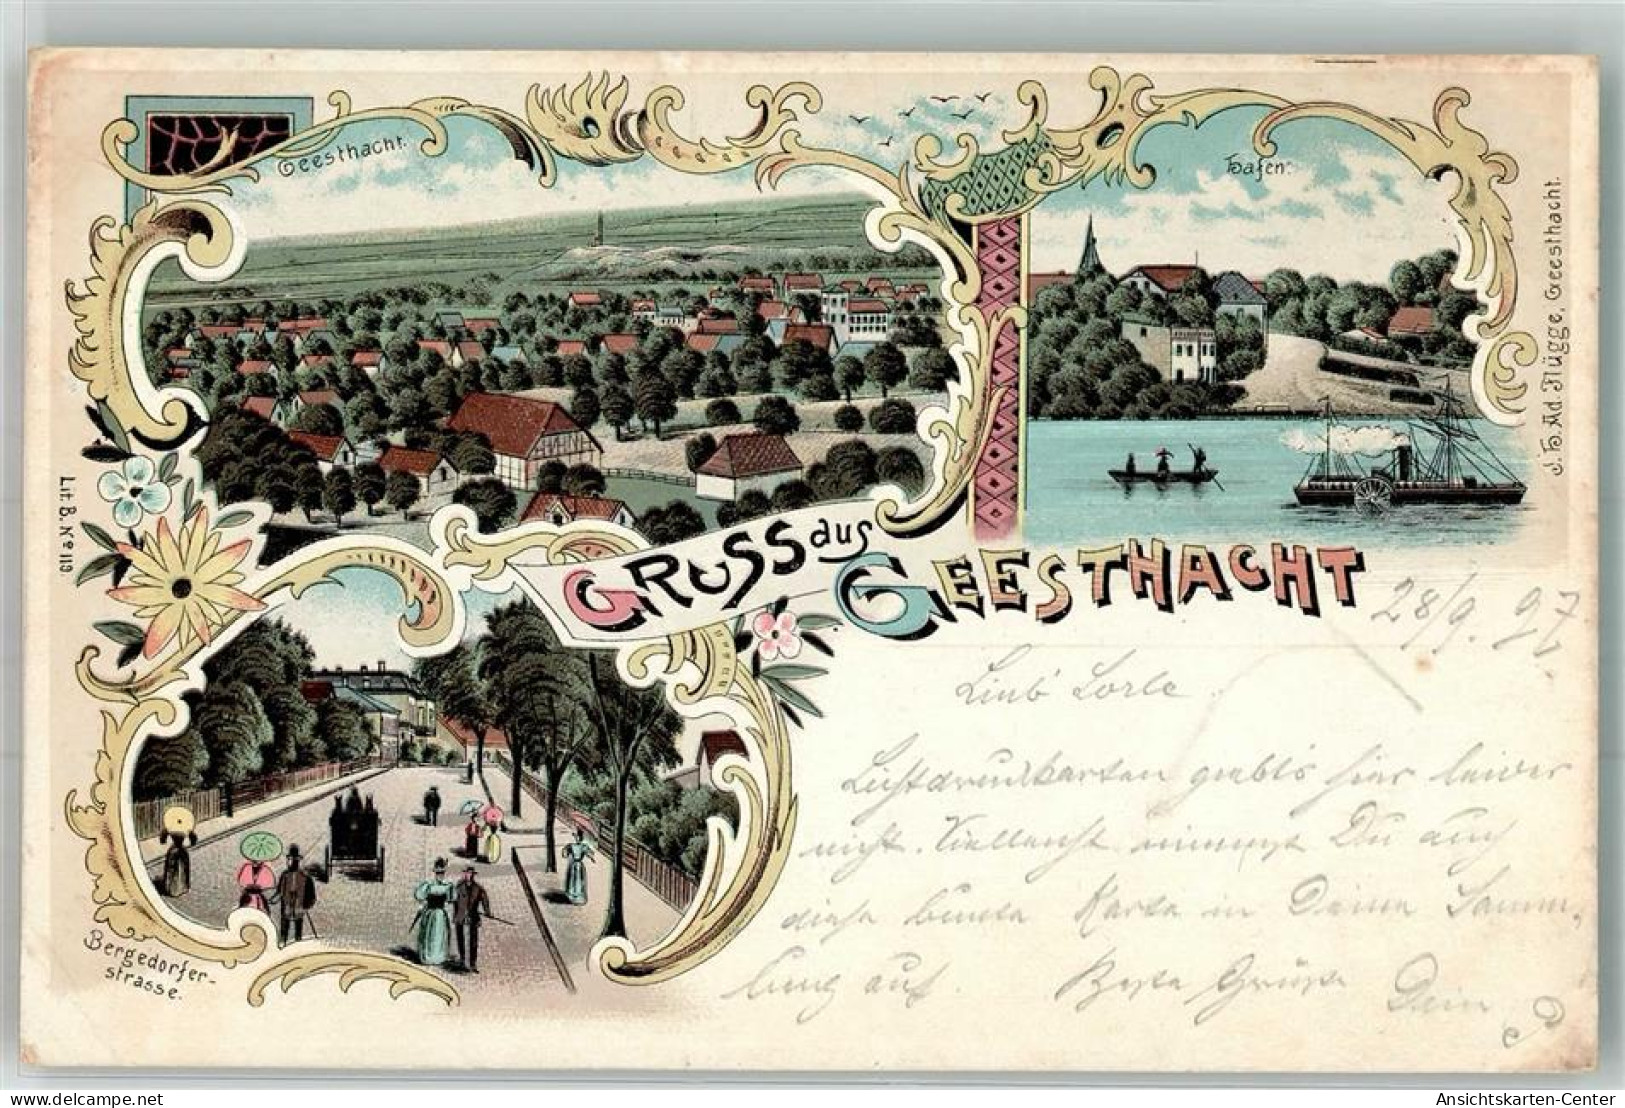 Geesthacht.
Hafen.
J. H. Ad Flügge, Geesthacht.
Lit. B. No 119.
GRUSS aus GEESTHACHT
Bergedorfer-
strasse.
28/9. 97
Lieb' Lorle
Lichtdruckkarten giebt's hier leider
nicht. Vielleicht nimmst Du auch
diese bunte Karte in Deine Samm-
lung auf. Beste Grüsse
Dein
delcampe.net
Ansichtskarten-Center